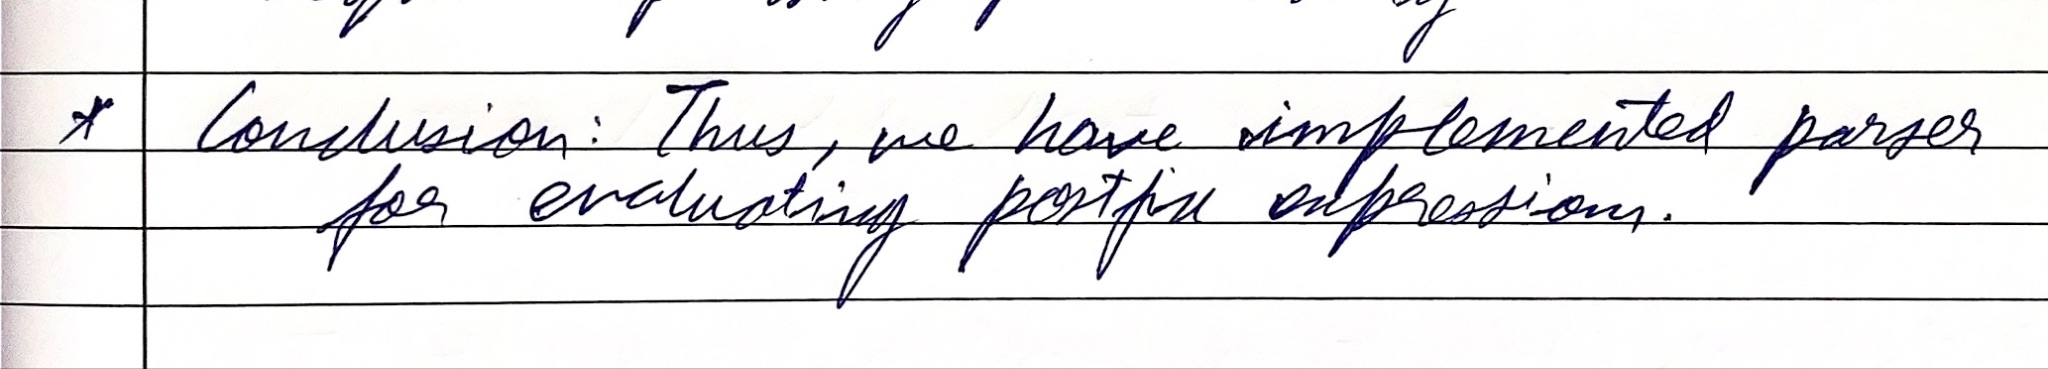 * Conclusion: Thus, we have implemented parser
for evaluating postfix expression.